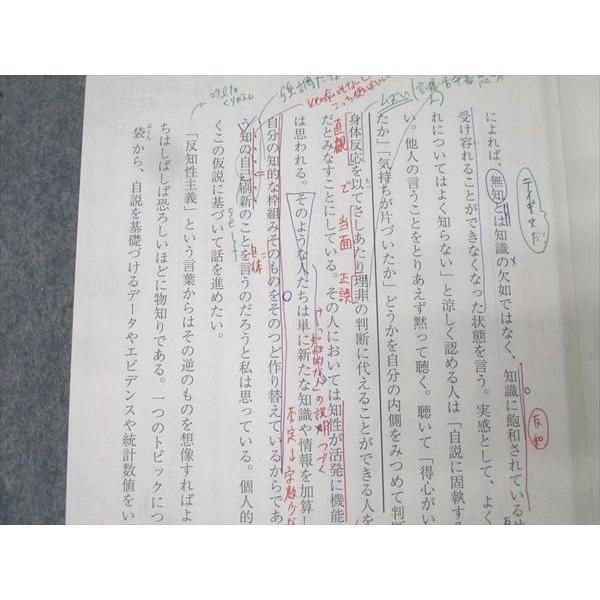 によれば、無知とは知識の欠如ではなく、知識に飽和されている
受け容れることができなくなった状態を言う。実感として、よく
れについてはよく知らない」と涼しく認める人は「自説に固執す
い。他人の言うことをとりあえず黙って聴く。聴いて「得心がい
たか」「気持ちが片づいたか」どうかを自分の内側をみつめて判
身体反応を以てさしあたり理非の判断に代えることができる人を
だとみなすことにしている。その人においては知性が活発に機能
は思われる。そのような人たちは単に新たな知識や情報を加算し
自分の知的な枠組みそのものをそのつど作り替えているからであ
う知の自己刷新のことを言うのだろうと私は思っている。個人的
くこの仮説に基づいて話を進めたい。
「反知性主義」という言葉からはその逆のものを想像すればよ
ちはしばしば恐ろしいほどに物知りである。一つのトピックにつ
袋から、自説を基礎づけるデータやエビデンスや統計数値をい
ぶくろ
直観で当面正誤
自体
テイギせだ